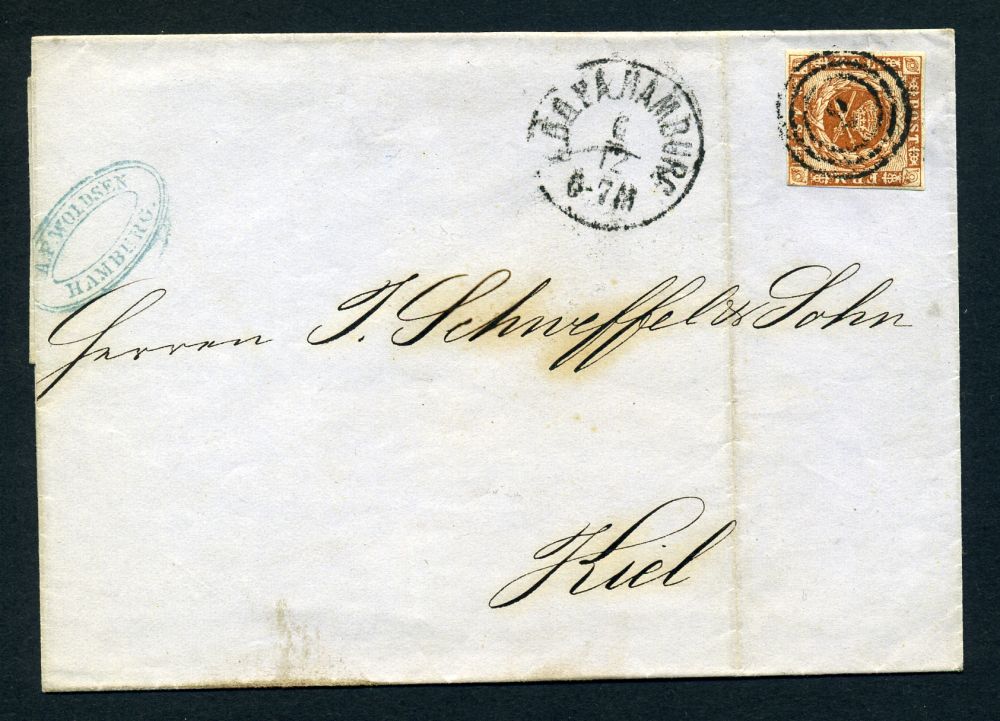 K.D.O.P.A. HAMBURG
6
12
6-7M
POST
A.F. WOLDSEN
HAMBURG.
Herren J. Schweffel & Sohn
Kiel